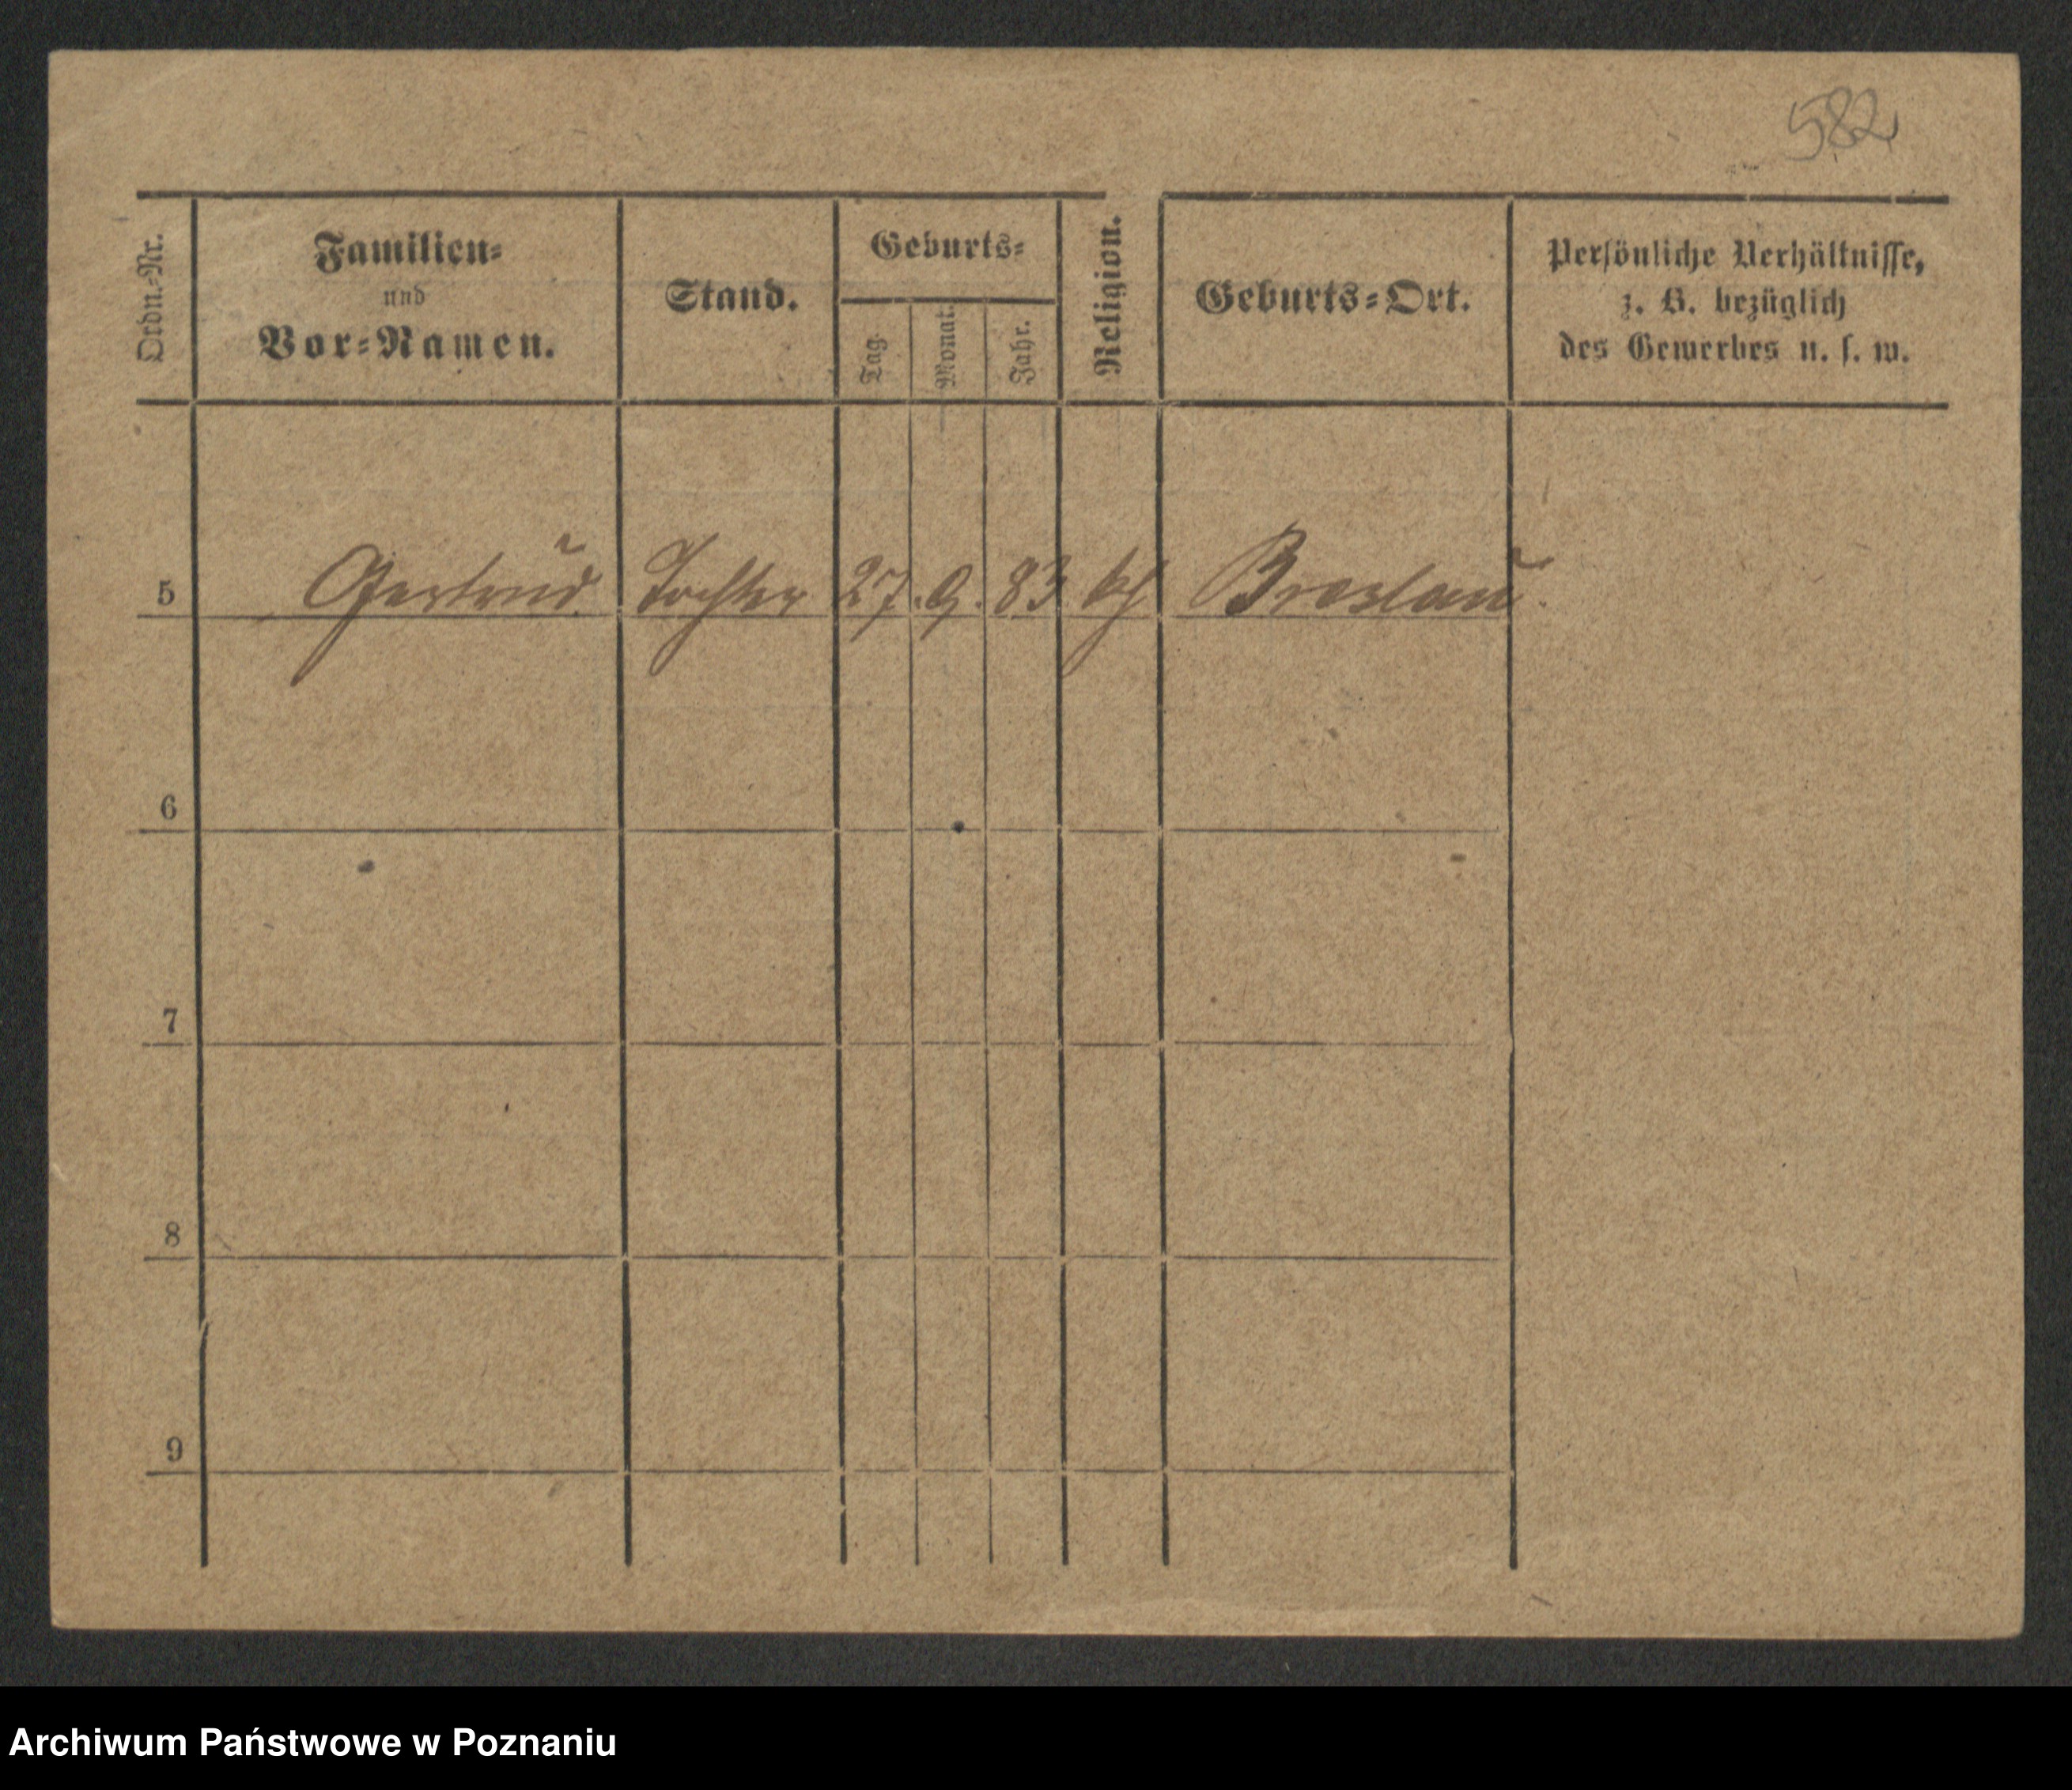 582
Ordn.-Nr.
Familien-
und
Vor-Namen.
Stand.
Geburts-
Tag.
Monat.
Jahr.
Religion.
Geburts-Ort.
Persönliche Verhältnisse,
z. B. bezüglich
des Gewerbes u. s. w.
5 Gertrud Tochter 27. 9. 83 kth Breslau
6
7
8
9
Archiwum Państwowe w Poznaniu